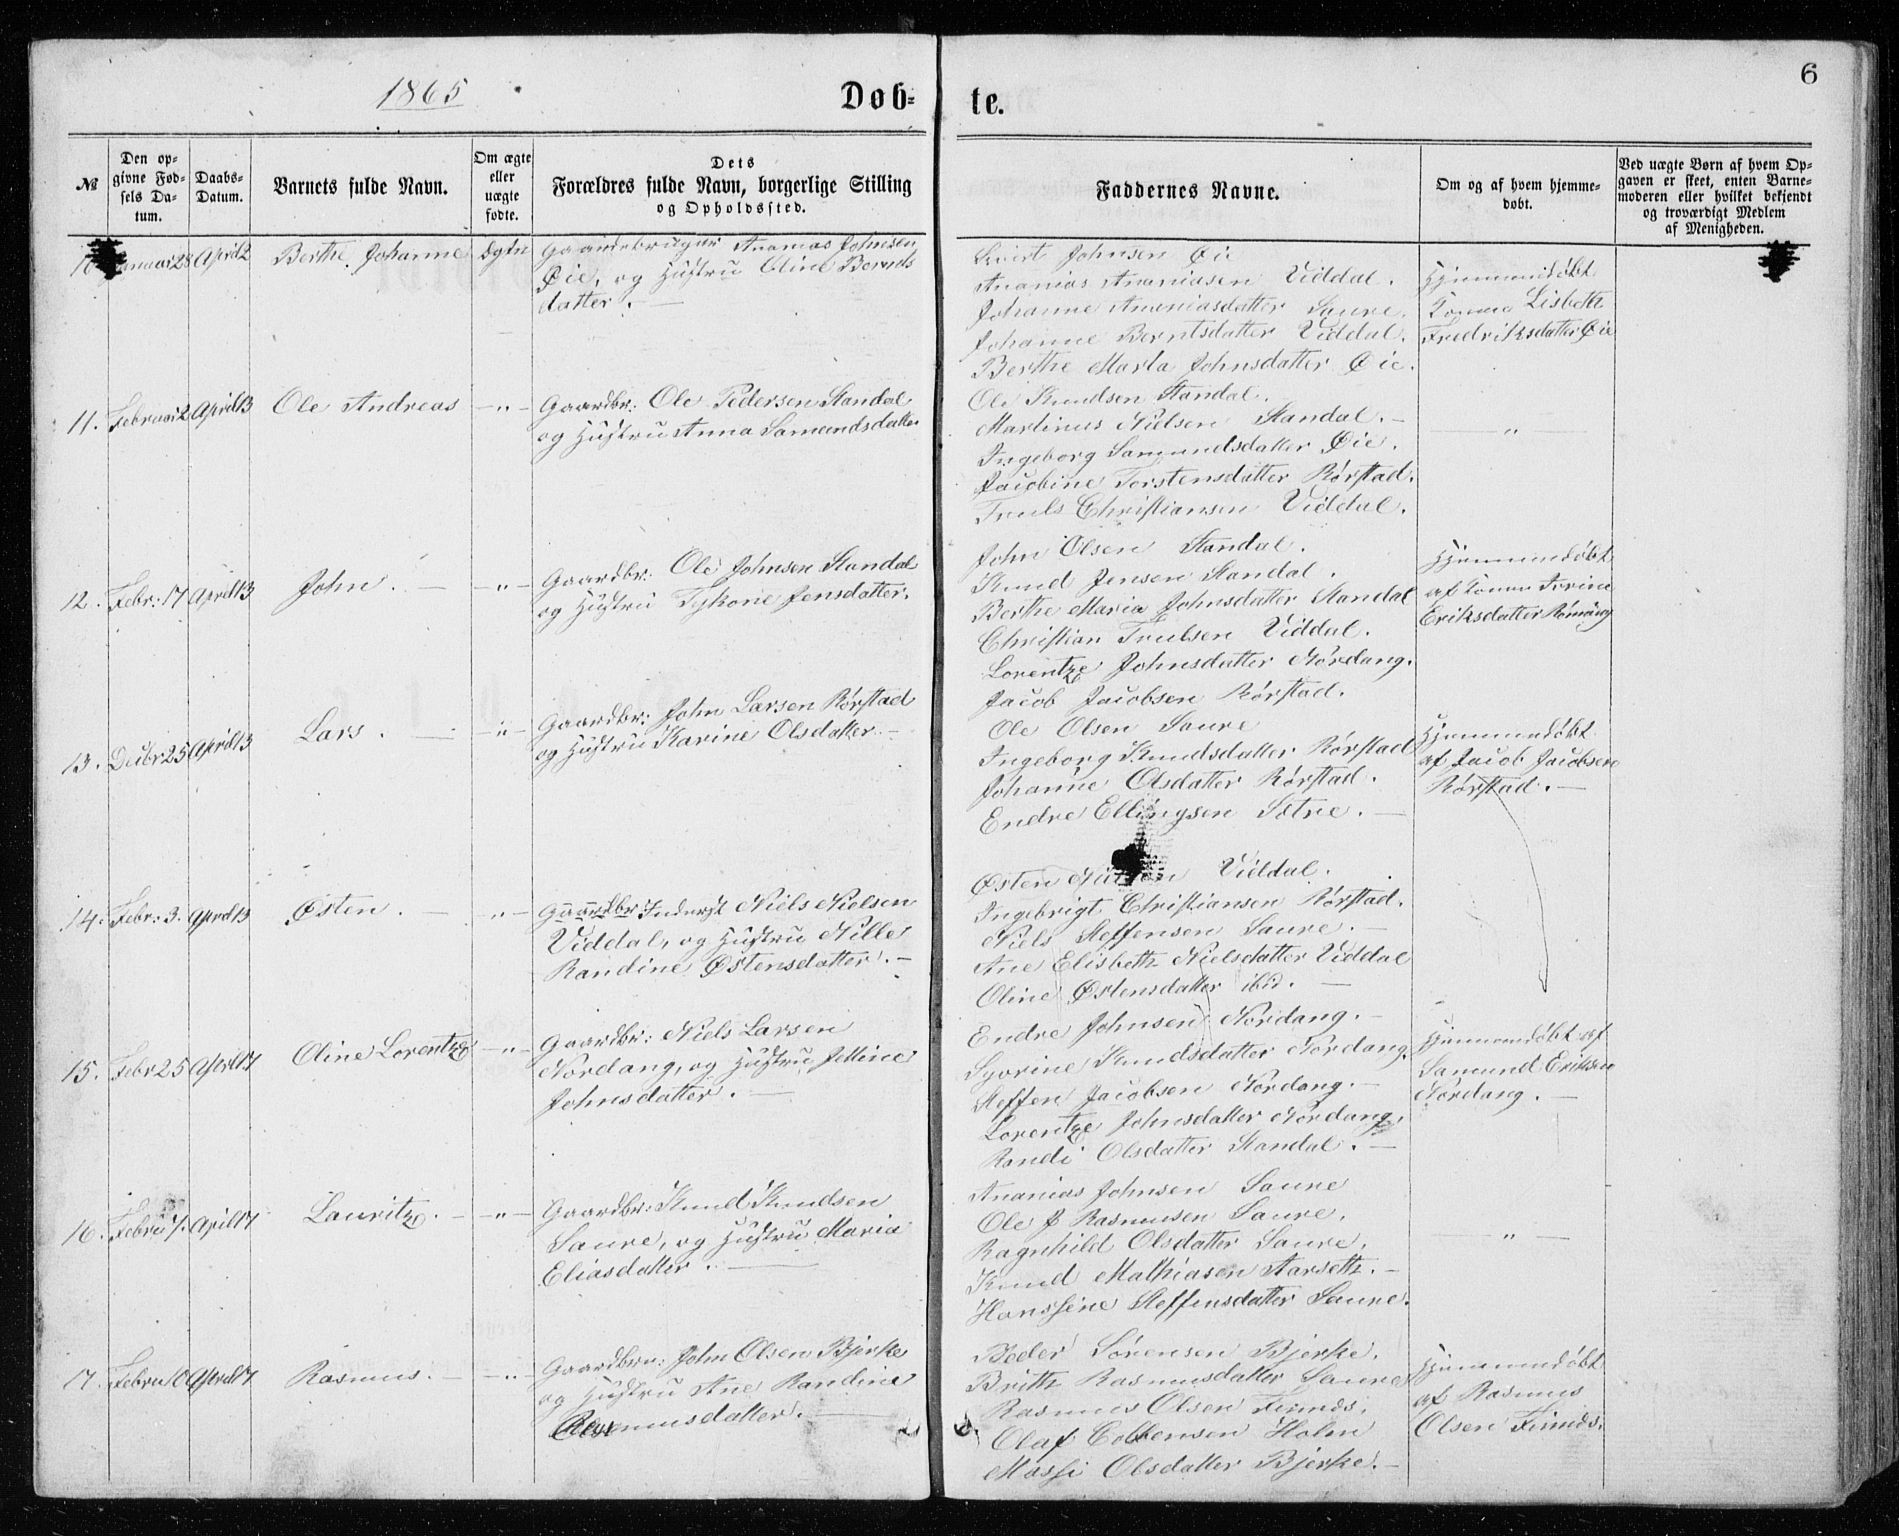 6
1865
Døb-
te.
№
Den op-
givne Fød-
sels Da-
tum.
Daabs-
Datum.
Barnets fulde Navn.
Om ægte
eller
uægte
fødte.
Dets
Forældres fulde Navn, borgerlige Stilling
og Opholdssted.
Faddernes Navne.
Om og af hvem hjemme-
døbt.
Ved uægte Børn af hvem Op-
gaven er skeet, enten Barne-
moderen eller hvilket bekjendt
og troværdigt Medlem
af Menigheden.
10 Januar 28 April 2 Berthe Johanne ægte Gaardebruger Ananias Johnsen
Øie, og Hustru Oline Bernts
datter. —
Johnsen Øie
Ananias Ananiasen Viddal.
Johanne Ananiasdatter Saure.
Johanne Berntsdatter Viddal.
Berthe Marta Johnsdatter Øie.
Hjemmedøbt
Lisbeth
Fredriksdatter Øie
11. Februar 2 April 13 Ole Andreas — " — Gaardbr: Ole Pedersen Standal
og Hustru Anna Samundsdatter
Ole Knudsen Standal.
Martinus Nielsen Standal. —
Ingeborg Samundsdatter Øie.
Jacobine Torstensdatter Rørstad.
Truls Christiansen Viddal.
— " —
12. Febr: 17 April 13 John. — — " — Gaardbr: Ole Johnsen Standal
og Hustru Jensdatter.
John Olsen Standal.
Knud Jensen Standal.
Berthe Maria Johnsdatter Standal
Christian Trulsen Viddal.
Lorentze Johnsdatter Nordang.
Hjemmedøbt
af
Eriksdatter
13. Decbr 25 April 13 Lars. — — " — Gaardbr: John Larsen Rørstad
og Hustru Karine Olsdatter. —
Jacob Jacobsen Rørstad.
Ole Olsen Saure
Ingeborg Knudsdatter Rørstad
Johanne Olsdatter Rørstad.
Endre Ellingsen Sætre. —
Hjemmedøbt
af Jacob Jacobsen
Rørstad. —
14. Febr: 3. April 13 Østen. — " — Gaardbr: Inderst Niels Nielsen
Viddal, og Hustru Nille
Randine Østensdatter. —
Østen Viddal.
Ingebrigt Christiansen Rørstad.
Niels Steffensen Saure. —
Ane Elisbeth Nielsdatter Viddal
Oline Østensdatter ibid. —
15. Febr 25 April 17 Oline Lorentze — " — Gaardbr: Niels Larsen
Nordang, og Hustru Jettine
Johnsdatter. —
Endre Johnsen Nordang. —
Syvrine Knudsdatter Nordang.
Steffen Jacobsen Nordang. —
Lorentze Johnsdatter Nordang.
Randi Olsdatter Standal. —
Hjemmedøbt af
Samund Eriksen
Nordang. —
16. Febru 7. April 17 Lauritz. — — " — Gaardbr: Knud Knudsen
Saure, og Hustru Maria
Eliasdatter. —
Ananias Johnsen Saure
Ole Rasmussen Saure.
Ragnhild Olsdatter Saure.
Knud Mathiasen Aarseth. —
Hanssine Steffensdatter Saure.
— " —
17. Febru 10 April 17 Rasmus. — — " — Gaardbru: John Olsen Bjerke
og Hustru Ane Randine
Rasmusdatter. —
Peder Sørensen Bjerke.
Brith Rasmusdatter Saure
Rasmus Olsen Finnes.
Olaf Holm
Massi Olsdatter Bjerke. —
Hjemmedøbt
af Rasmus
Olsen Finnes.